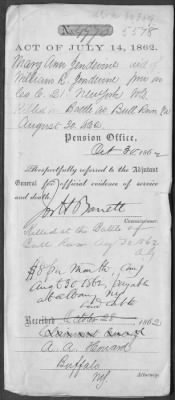 No. 5578
ACT OF JULY 14, 1862.
Mary Ann Jenderine wid of
William B. Jenderine priv in
Co. C. 21 New York Vol
Killed in Battle at Bull Run Va
August 30, 1862
Pension Office,
Oct 30 1862
Respectfully referred to the Adjutant
General for official evidence of service
and death.
Jos H Barrett
Commissioner.
Killed at the Battle of
Bull Run Aug 30 1862
$8 per Month, Comg
Aug 30 1862, payable
at Albany, NY
Received October 28, 1862
A. A. Howard
Buffalo
NY
Attorney.